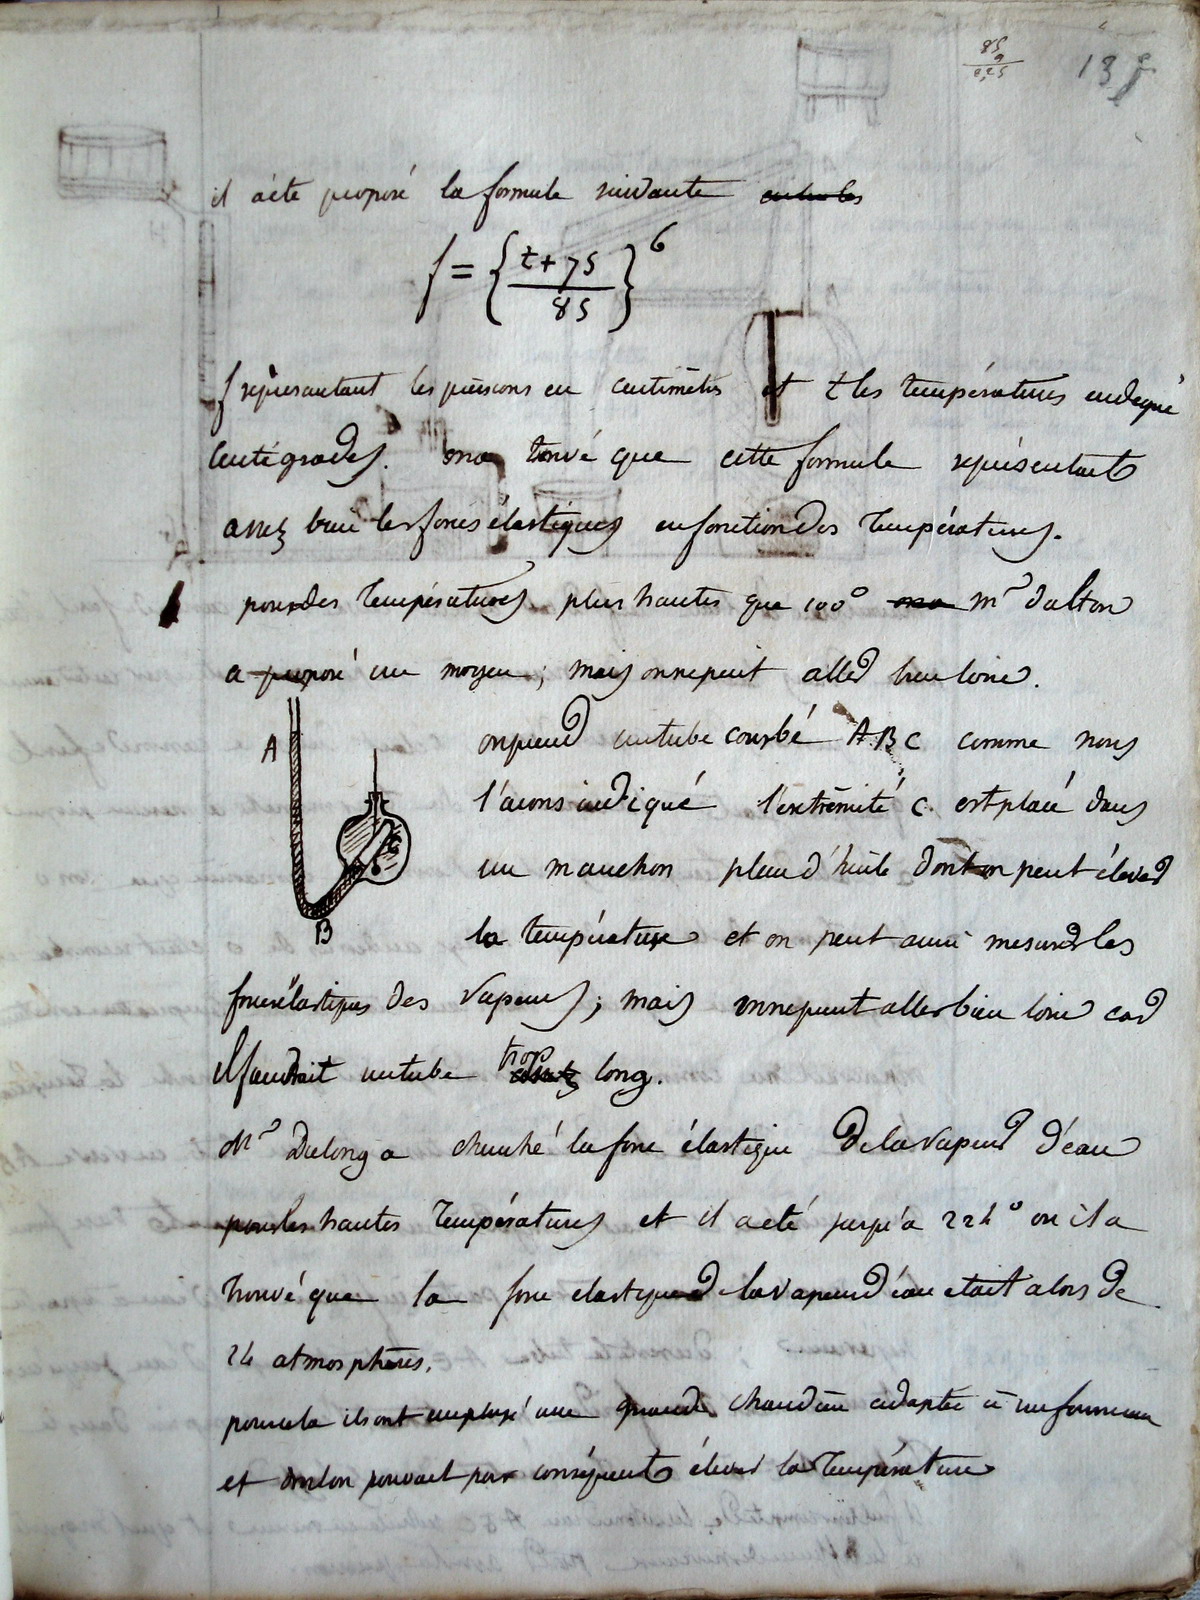 85
13
il a été proposé la formule suivante
f = { t + 75 / 85 }^6
f représentant les pressions en centimètres et t les températures en degré
centigrades. on a trouvé que cette formule représentait
assez bien les forces élastiques en fonction des températures.
pour des températures plus hautes que 100° Mr dalton
a proposé un moyen ; mais on ne peut aller bien loin.
A
on prend un tube courbé A B C comme nous
l'avons indiqué l'extrémité C est placé dans
C
un manchon plein d'huile dont on peut élever
B
la température et on peut aussi mesurer les
forces élastiques des vapeurs ; mais on ne peut aller bien loin car
il faudrait un tube trop long.
Mr Dulong a cherché la force élastique de la vapeur d'eau
pour les hautes températures et il a été jusqu'à 224° où il a
trouvé que la force elastique de la vapeur d'eau etait alors de
24 atmosphères.
pour cela ils ont employé une grande chaudière adaptée à un fourneau
et dont on pouvait par conséquent élever la température